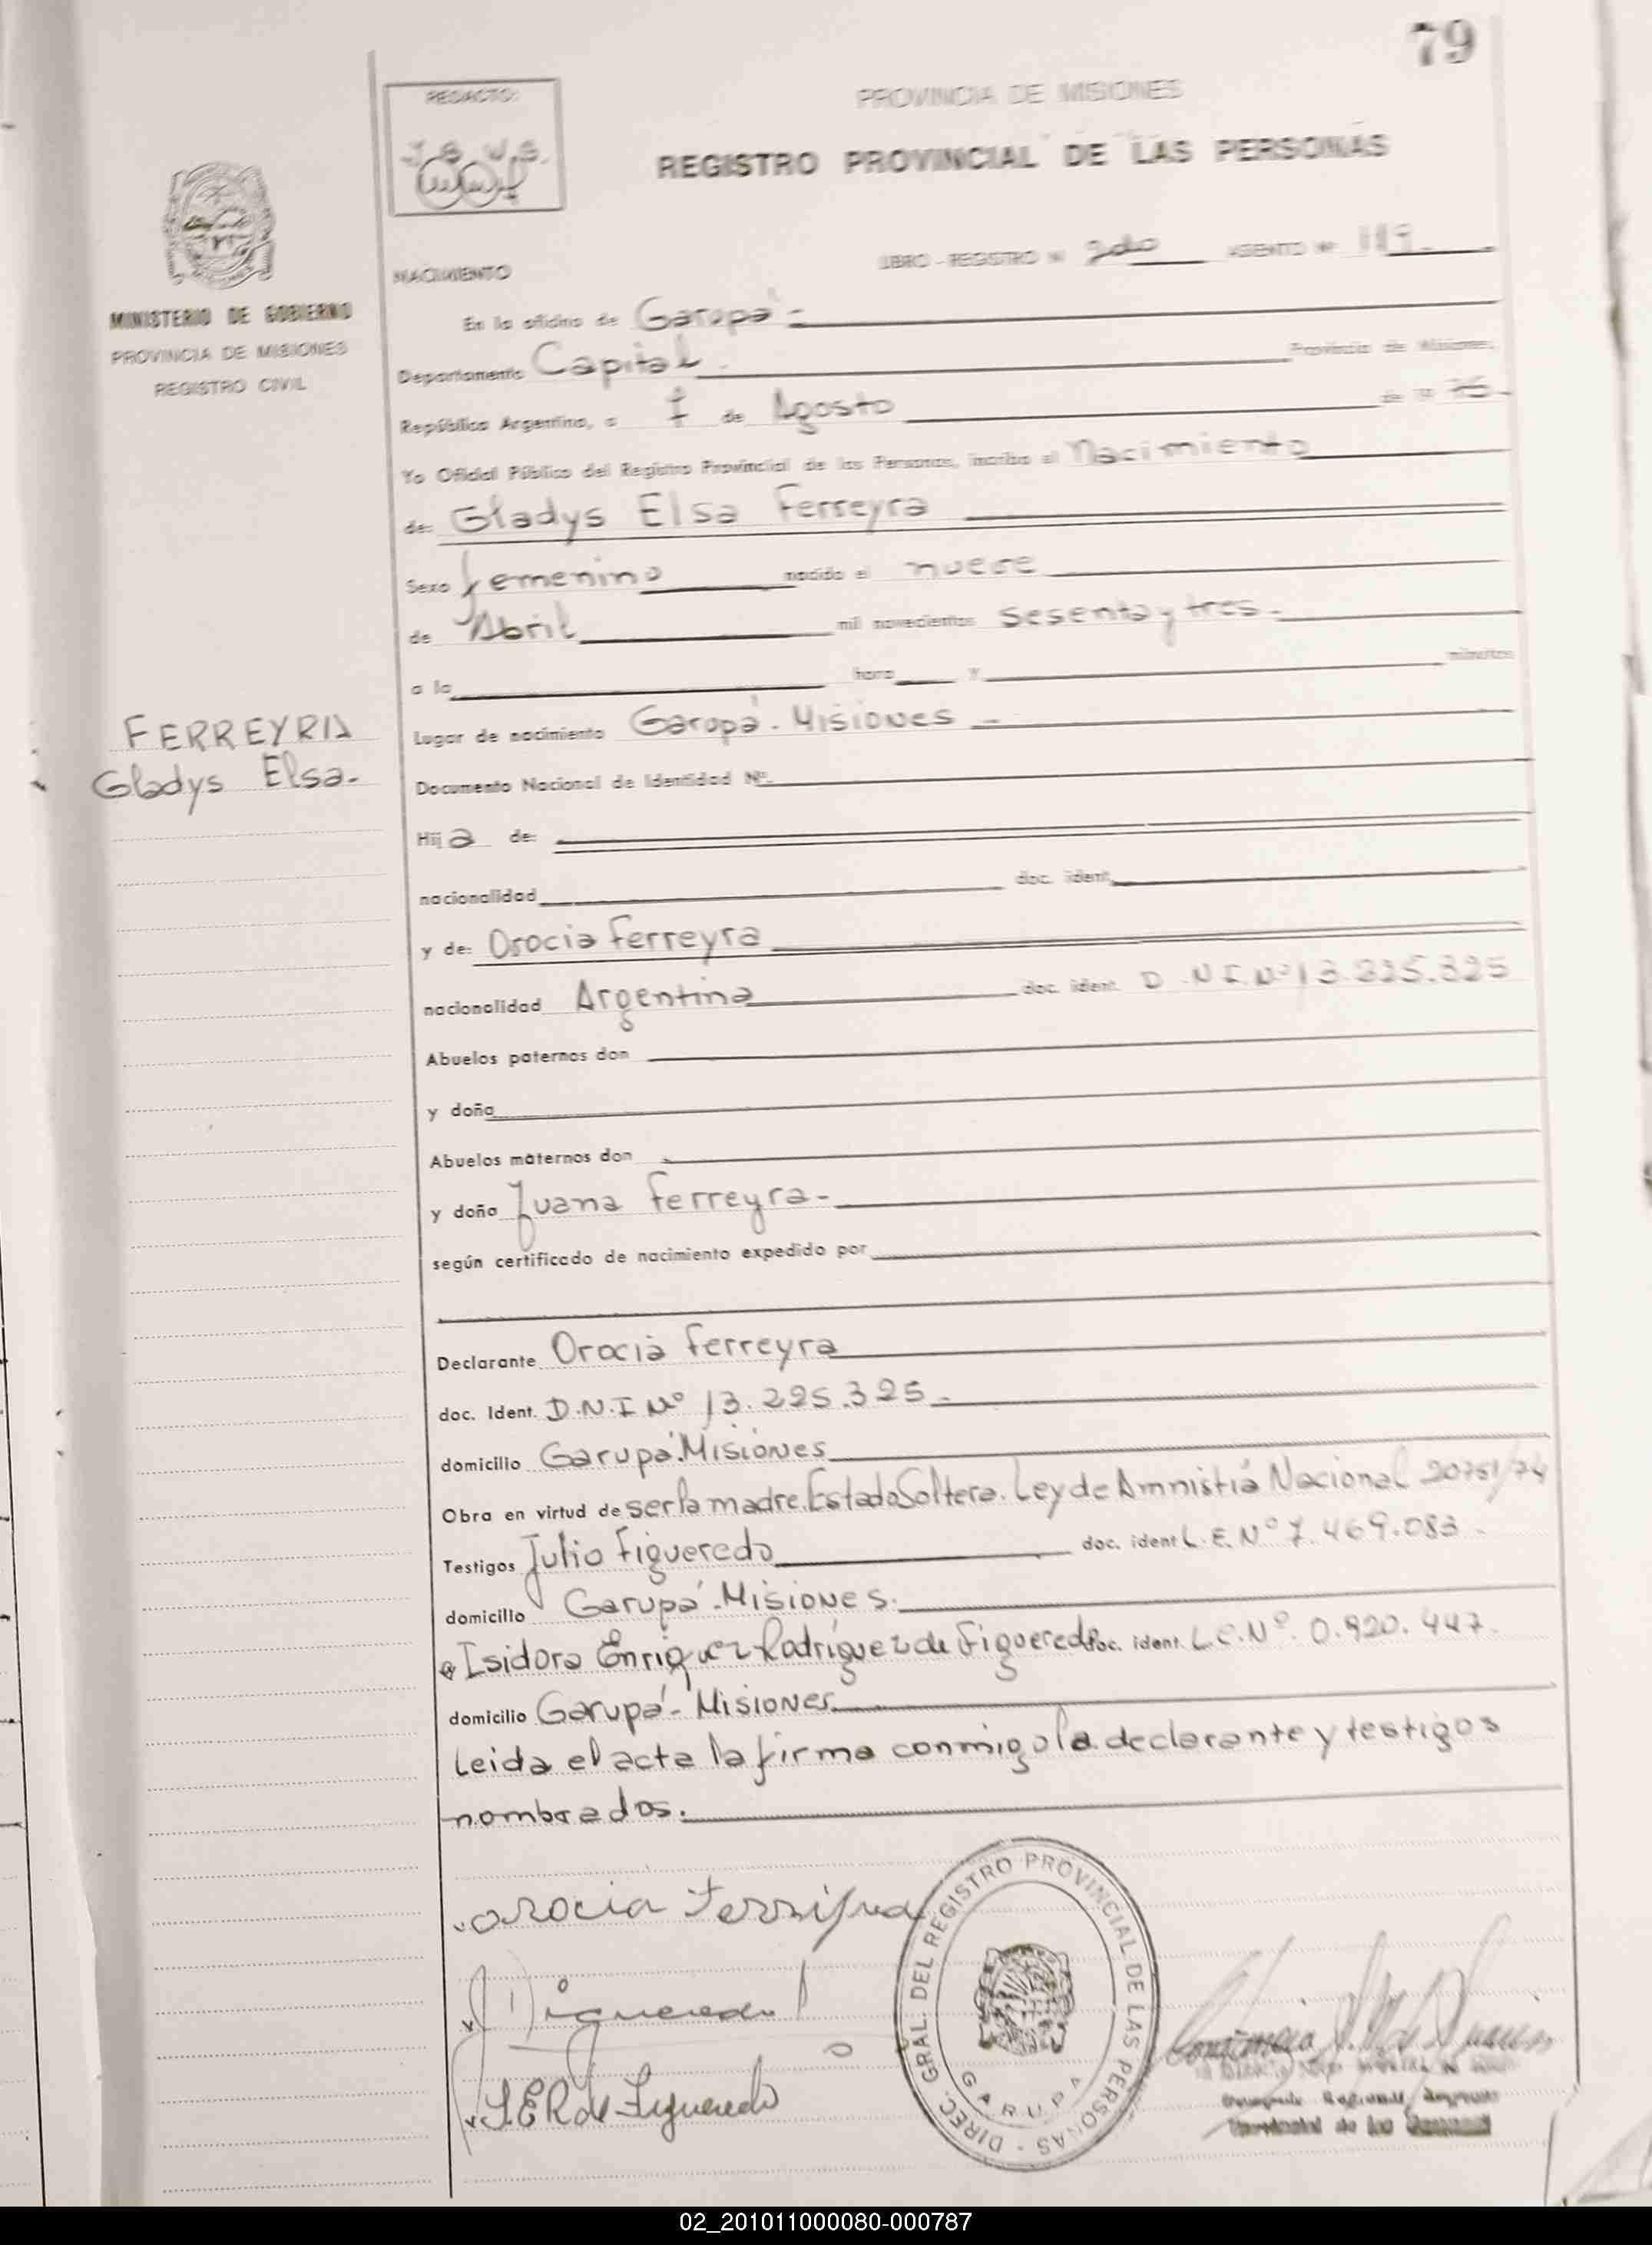 79
REDACTO:
PROVINCIA DE MISIONES
REGISTRO PROVINCIAL DE LAS PERSONAS
MINISTERIO DE GOBIERNO
PROVINCIA DE MISIONES
REGISTRO CIVIL
NACIMIENTO
LIBRO - REGISTRO Nº 2do ASIENTO Nº
En la oficina de Garupá -
Departamento Capital. Provincia de Misiones,
República Argentina, a 7 de Agosto de 19 75-
Yo Oficial Público del Registro Provincial de las Personas, inscribo el Nacimiento
de: Gladys Elsa Ferreyra
Sexo femenino nacido el nueve
de Abril mil novecientos sesenta y tres.
a la hora y minutos
FERREYRA
Gladys Elsa.
Lugar de nacimiento Garupá. Misiones -
Documento Nacional de Identidad Nº
Hija de:
nacionalidad doc. ident.
y de: Orocia Ferreyra
nacionalidad Argentina doc. ident. D.N.I. Nº 13.225.325
Abuelos paternos don
y doña
Abuelos maternos don
y doña Juana Ferreyra-
según certificado de nacimiento expedido por
Declarante Orocia Ferreyra
doc. Ident. D.N.I Nº 13.225.325.
domicilio Garupá.Misiones
Obra en virtud de ser la madre. Estado Soltera. Ley de Amnistia Nacional 20751/74
Testigos Julio Figueredo doc. ident L.E. Nº 7.469.083.
domicilio Garupá-Misiones.
Isidora Enriquez Rodríguez de Figueredo doc. ident. L.C. Nº. 0.920.447.
domicilio Garupá- Misiones
Leida el acta la firma conmigo la declarante y testigos
nombrados.
orocia Ferreyra
J Figueredo
I.E.R de Figueredo
DIREC. GRAL. DEL REGISTRO PROVINCIAL DE LAS PERSONAS - GARUPA
02_201011000080-000787